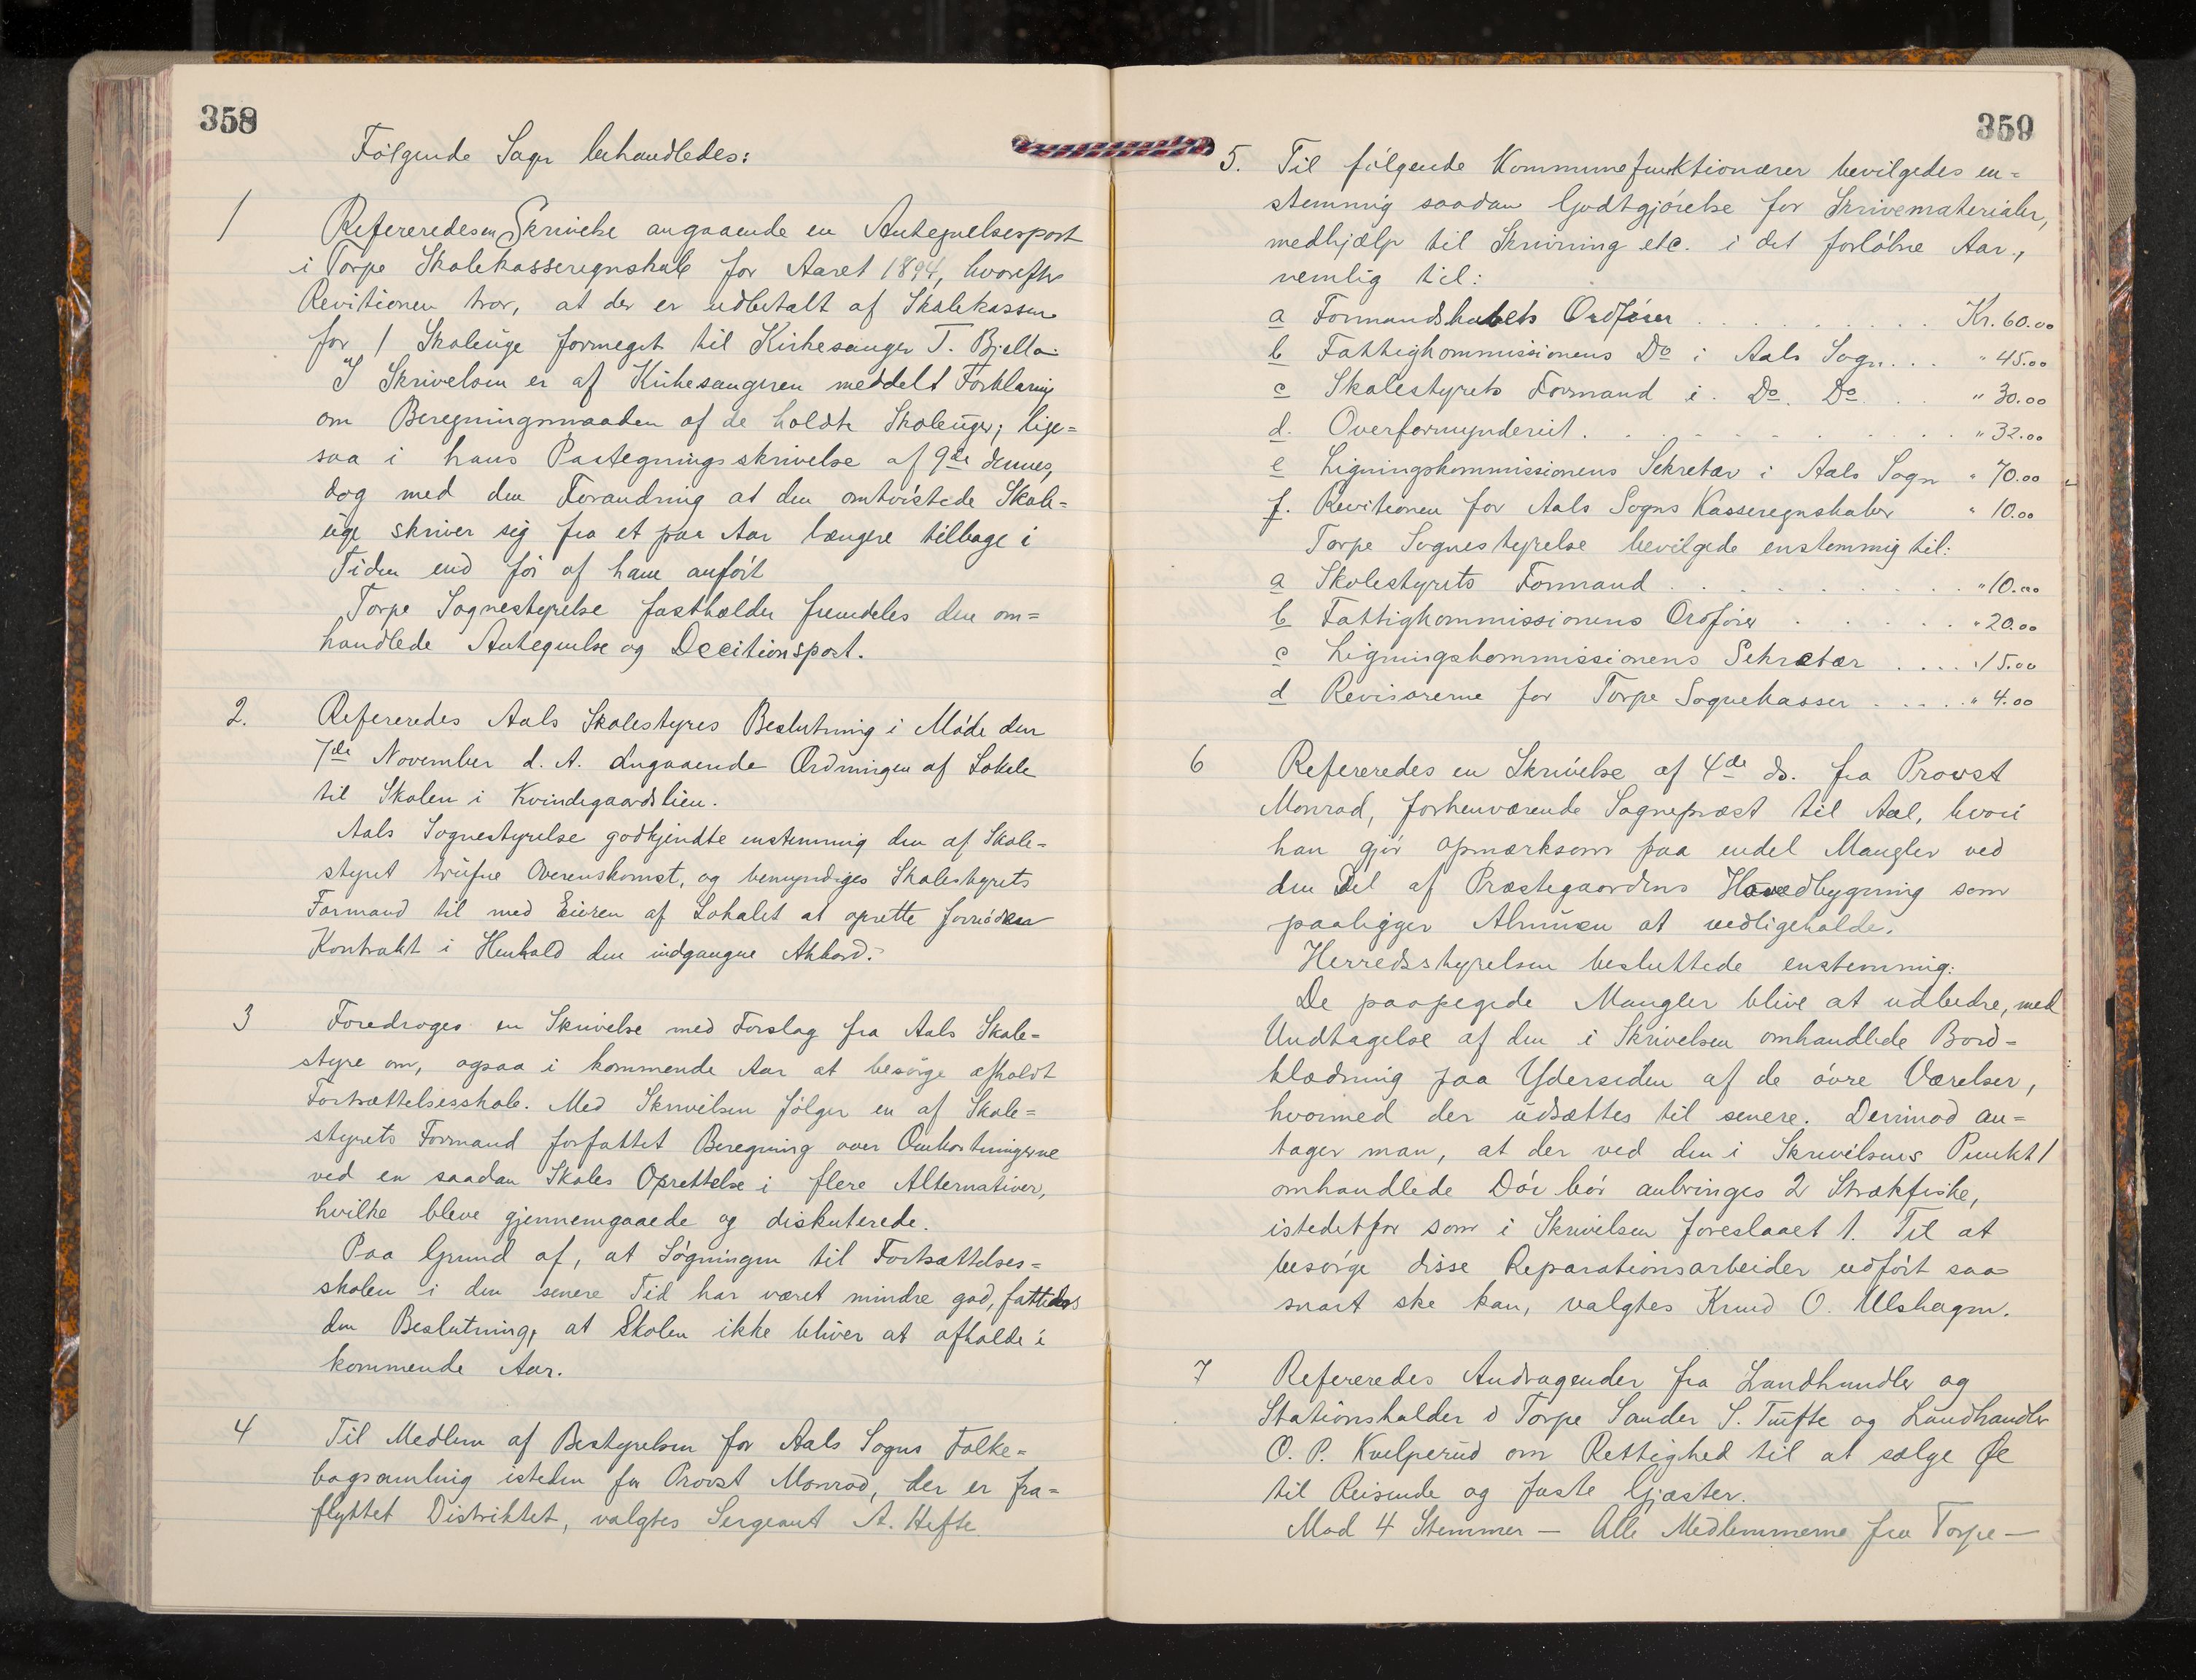 358
Følgende Sager behandledes:
1 Refereredes en Skrivelse angaaende en Antegnelsespost
i Torpe Skolekasseregnskab for Aaret 1894, hvorefter
Revitionen tror, at der er udbetalt af Skolekassen
for 1 Skoleuge formeget til Kirkesanger T. Bjella.
I Skrivelsen er af Kirkesangeren meddelt Forklaring
om Beregningsmaaden af de holdte Skoleuger; lige=
saa i hans Paategningsskrivelse af 9de dennes,
dog med den Forandring at den omtvistede Skole=
uge skriver sig fra et par Aar længere tilbage i
Tiden end før af ham anført
Torpe Sognestyrelse fastholder fremdeles den om=
handlede Antegnelse og Decitionspost.
2. Refereredes Aals Skolestyres Beslutning i Møde den
7de November d. A. angaaende Ordningen af Lokale
til Skolen i Kvindegaardslien.
Aals Sognestyrelse godkjendte enstemmig den af Skole-
styret trufne Overenskomst, og bemyndiges Skolestyrets
Formand til med Eieren af Lokalet at oprette fornøden
Kontrakt i Henhold den indgangne Akkord.
3 Foredroges en Skrivelse med Forslag fra Aals Skole=
styre om, ogsaa i kommende Aar at besørge afholdt
Fortsættelsesskole. Med Skrivelsen følger en af Skole=
styrets Formand forfattet Beregning over Omkostningerne
ved en saadan Skoles Oprettelse i flere Alternativer,
hvilke bleve gjennemgaaede og diskuterede.
Paa Grund af, at Søgningen til Fortsættelses=
skolen i den senere Tid har været mindre god, fattedes
den Beslutning, at Skolen ikke bliver at afholde i
kommende Aar.
4 Til Medlem af Bestyrelsen for Aals Sogns Folke=
bogsamling isteden for Provst Monrad, der er fra=
flyttet Distriktet, valgtes Sergeant A. Hefte
359
5. Til følgende Kommunefunktionærer bevilgedes en=
stemmig saadan Godtgjørelse for Skrivematerialer,
medhjælp til Skrivning etc. i det forløbne Aar,
nemlig til:
a Formandskabets Ordfører . . . . . . . . . . Kr. 60.00
b Fattigkommissionens Do i Aals Sogn . . . " 45.00
c Skolestyrets Formand i Do. Do . . . " 30.00
d. Overformynderiet . . . . . . . . . . " 32.00
e Ligningskommissionens Sekretær i Aals Sogn " 70.00
f. Revitionen for Aals Sogns Kasseregnskaber " 10.00
Torpe Sognestyrelse bevilgede enstemmig til:
a Skolestyrets Formand . . . . . . . . . . " 10.00
b Fattigkommissionens Ordfører . . . . . . " 20.00
c Ligningskommissionens Sekretær . . . . " 15.00
d Revisorerne for Torpe Sognekasser . . . . . " 4.00
6 Refereredes en Skrivelse af 4de ds. fra Provst
Monrad, forhenværende Sognepræst til Aal, hvori
han gjør opmærksom paa endel Mangler ved
den Del af Præstegaardens Hovedbygning som
paaligger Almuen at vedligeholde.
Herredsstyrelsen besluttede enstemmig:
De paapegede Mangler blive at udbedre, med
Undtagelse af den i Skrivelsen omhandlede Bord=
klædning paa Ydersiden af de øvre Værelser,
hvormed der udsættes til senere. Derimod an=
tager man, at der ved den i Skrivelsens Punkt 1
omhandlede Dør bør anbringes 2 Strækfiske,
istedetfor som i Skrivelsen foreslaaet 1. Til at
besørge disse Reparationsarbeider udført saa
snart ske kan, valgtes Knud O. Ulshagen.
7 Refereredes Andragender fra Landhandler og
Stationsholder i Torpe Sander S. Tufte og Landhandler
O. P. Kvelperud om Rettighed til at sælge Øl
til Reisende og faste Gjæster.
Mod 4 Stemmer — Alle Medlemmerne fra Torpe —